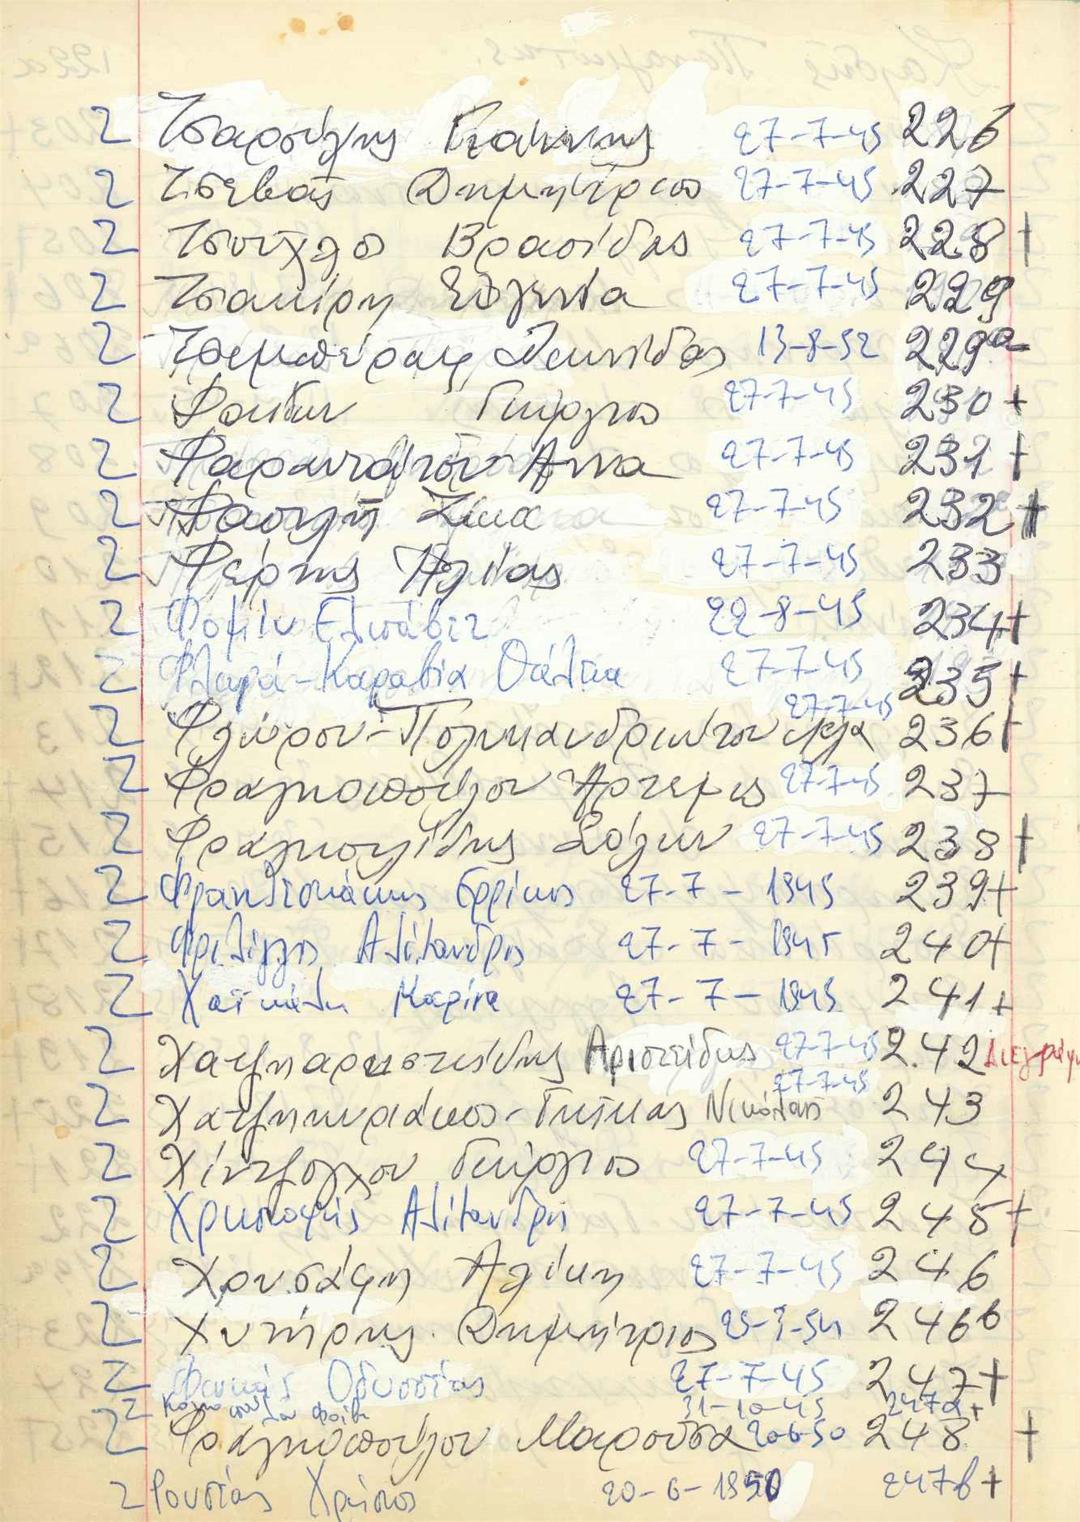 2 Τσαρούχης Γιάννης 27-7-45 226
2 Τσεβάς Δημήτριος 27-7-45 227
2 Τσούχλος Βρασίδας 27-7-45 228 +
2 Τσακίρη Ευγενία 27-7-45 229
2 Λεωνίδας 13-8-52 229α
2 Γεώργιος 27-7-45 230 +
2 Φαραντάτου Άννα 27-7-45 231 +
2 Φασουλή 27-7-45 232 +
2 Φέρτης Ηλίας 27-7-45 233
2 Φομίν Ελισάβετ 22-8-45 234 +
2 Φλερά-Καραβία Θάλεια 27-7-45 235 +
2 Φλώρου-Πολυκανδριώτου 27-7-45 236 +
2 Φραγκοπούλου Άρτεμις 27-7-45 237
2 Φραγκουλίδης Σόλων 27-7-45 238 +
2 Φραντζισκάκης Ερρίκος 27-7-1945 239 +
2 Αλέξανδρος 27-7-1945 240 +
2 Μαρίκα 27-7-1945 241 +
2 Χατζηαριστείδης Αριστείδης 27-7-45 242
2 Χατζηκυριάκος-Γκίκας Νικόλαος 27-7-45 243
2 Χίντζογλου Γεώργιος 27-7-45 244
2 Αλέξανδρος 27-7-45 245 +
2 Χρυσάφη Αλίκη 27-7-45 246
2 Χυτήρης Δημήτριος 246β
2 Φωκάς Οδυσσέας 27-7-45 247 +
2 31-10-45 247α +
2 Φραγκοπούλου Μαρούσα 20-6-50 248 +
2 Χρήστος 20-6-1950 247β +